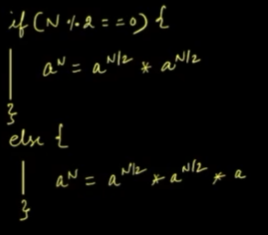 if (N % 2 == 0) {
a^N = a^N/2 * a^N/2
}
else {
a^N = a^N/2 * a^N/2 * a
}